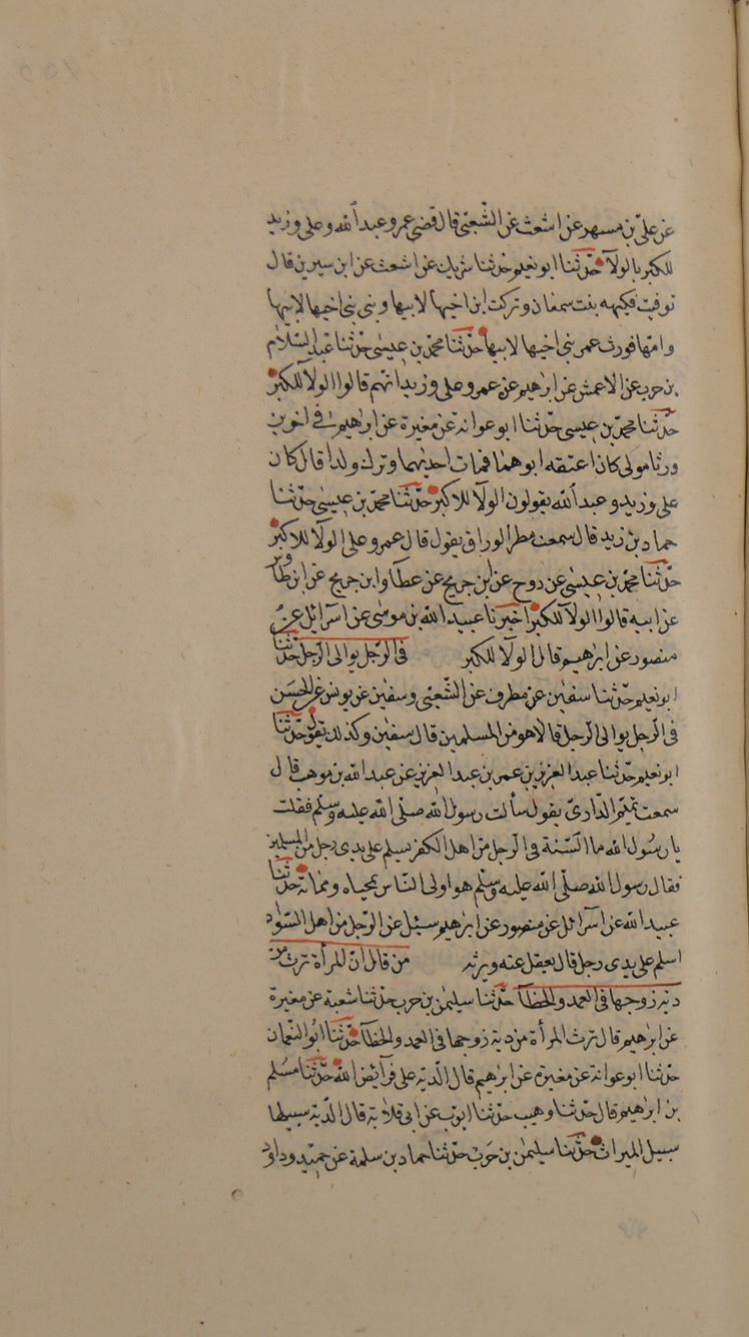 عن علي بن مسهر عن اشعث عن الشعبي قال قضى عمر وعبد الله وعلي وزيد
للكبر بالولآ حدثنا ابو نعيم حدثنا شريك عن اشعث عن ابن سيرين قال
توفيت فكيهه بنت سمعان وتركت ابن اخيها لابيها وبني بني اخيها لابيها
وامها فورث عمر بني اخيها لابيها حدثنا محمد بن عيسى حدثنا عبد السلام
بن حرب عن الاعمش عن ابرهيم عن عمر وعلي وزيد انهم قالوا الولآ للكبر
حدثنا محمد بن عيسى حدثنا ابو عوانة عن مغيرة عن ابرهيم في اخوين
ورثا مولى كان اعتقه ابوهما فمات احديهما وترك ولدا قال كان
علي وزيد وعبد الله يقولون الولآ للاكبر حدثنا محمد بن عيسى حدثنا
حماد بن زيد قال سمعت مطر الوراق يقول قال عمر وعلي الولآ للاكبر
حدثنا محمد بن عيسى عن روح عن ابن جريج عن عطا وابن جريج عن ابن طاوس
عن ابيه قالوا الولآ للكبر اخبرنا عبيد الله بن موسى عن اسرآئل عن
منصور عن ابرهيم قال الولآ للكبر في الرجل يوالي الرجل حدثنا
ابو نعيم حدثنا سفين عن مطرف عن الشعبي وسفين عن يونس عن الحسن
في الرجل يوالي الرجل قالا هو من المسلمين قال سفين وكذلك نقول حدثنا
ابو نعيم حدثنا عبد العزيز بن عمر بن عبد العزيز عن عبد الله بن موهب قال
سمعت تميم الداري يقول سألت رسول الله صلى الله عليه وسلم فقلت
يا رسول الله ما السنة في الرجل من اهل الكفر يسلم على يدي رجل من المسلمين
فقال رسول الله صلى الله عليه وسلم هو اولى الناس بمحياه ومماته حدثنا
عبيد الله عن اسرآئل عن منصور عن ابرهيم سئل عن الرجل من اهل السواد
اسلم على يدي رجل قال يعقل عنه ويرثه من قال ان للمرأة ترث من
دية زوجها في العمد والخطآ حدثنا سليمن بن حرب حدثنا شعبة عن مغيرة
عن ابرهيم قال ترث المرأة من دية زوجها في العمد والخطآ حدثنا ابو النعمان
حدثنا ابو عوانة عن مغيرة عن ابرهيم قال الدية على فرآئض الله حدثنا مسلم
بن ابرهيم قال حدثنا وهيب حدثنا ايوب عن ابي قلابة قال الدية سبيلها
سبيل الميراث حدثنا سليمن بن حرب حدثنا حماد بن سلمة عن حميد وداود